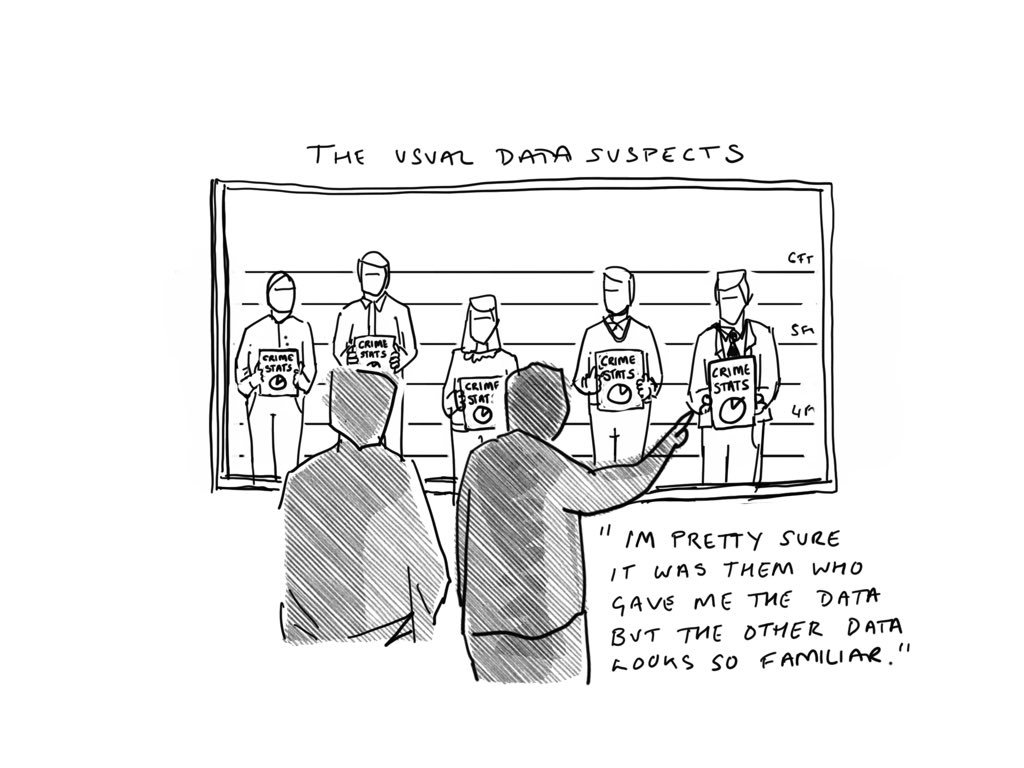 THE USUAL DATA SUSPECTS
6FT
5FT
4FT
CRIME
STATS
CRIME
STATS
CRIME
STATS
CRIME
STATS
CRIME
STATS
"IM PRETTY SURE
IT WAS THEM WHO
GAVE ME THE DATA
BUT THE OTHER DATA
LOOKS SO FAMILIAR."